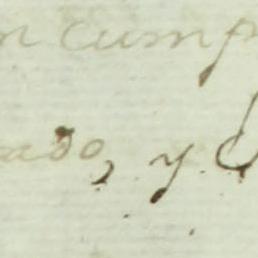 n cump
ado, y